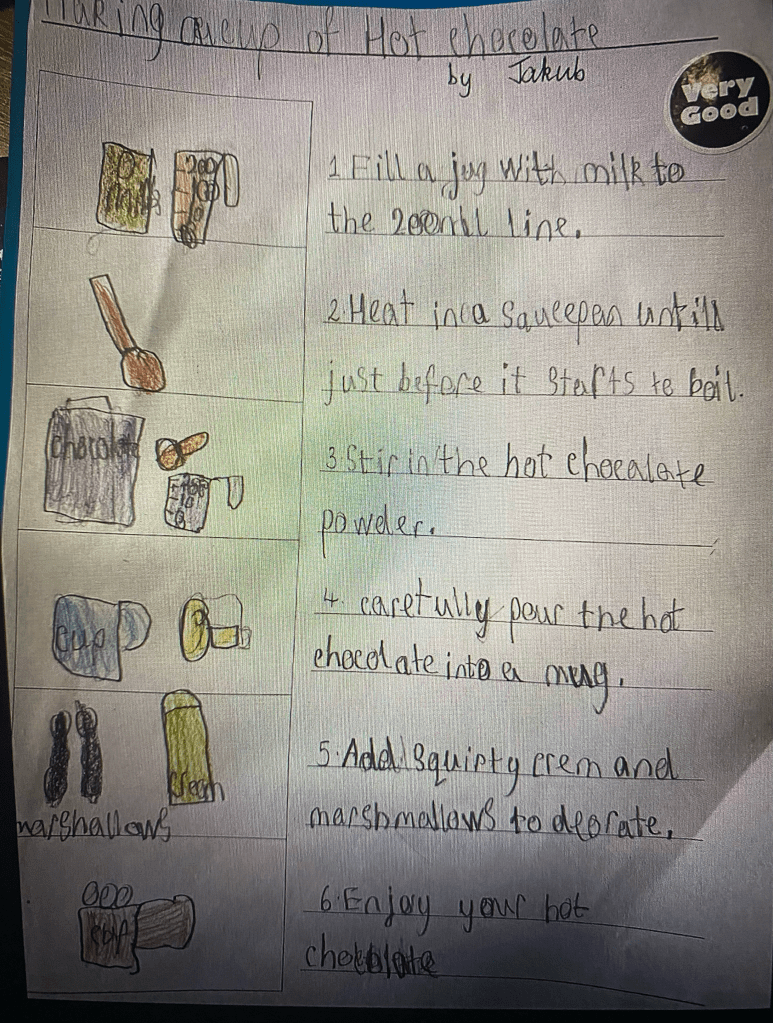 Making a cup of Hot chocolate
by Jakub
Very
Good
milk
200
100
10
1 Fill a jug with milk to
the 200ml line.
2. Heat in a saucepan untill
just before it starts to boil.
chocolate
100
10
0
3 Stir in the hot chocalate
powder.
cup
4. carefully pour the hot
chocolate into a mug.
cream
marshallows
5. Add squirty crem and
marshmallows to deorate.
cup
6. Enjoy your hot
chocolate